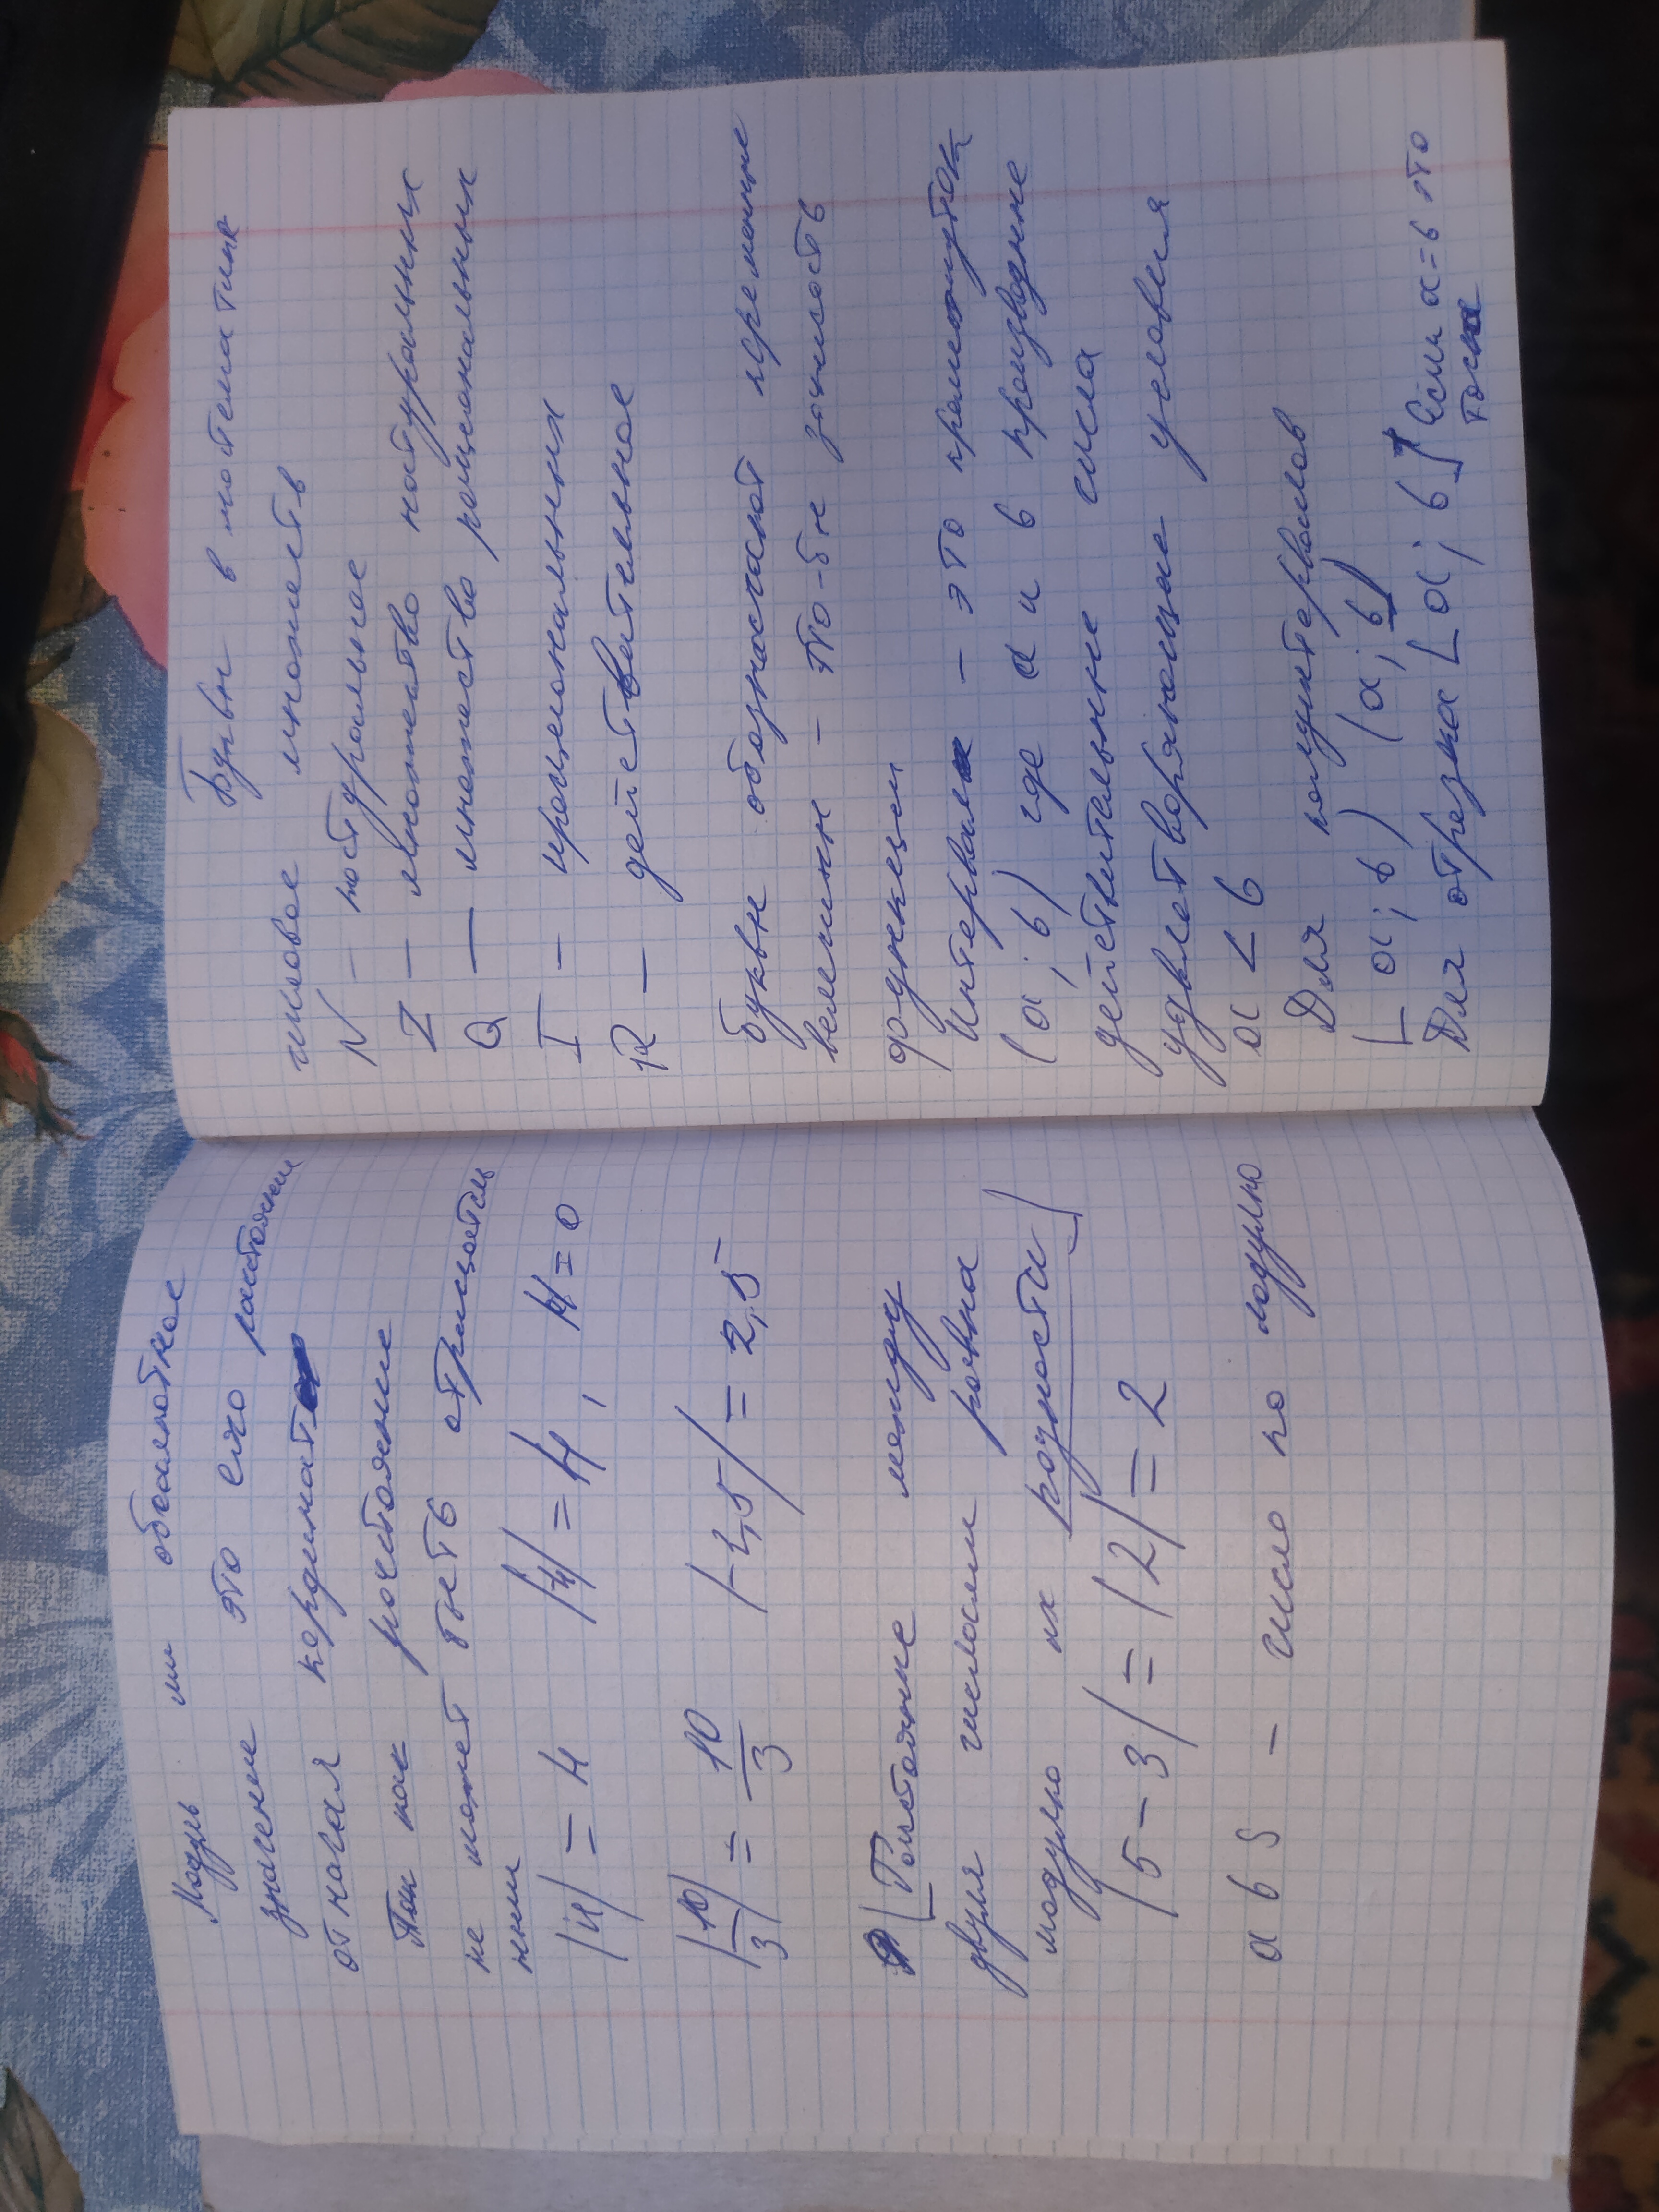 Модуль или абсалютное
значение это его растояние
от начала кординат
Так как росстояние
не может быть отрицатель
ным
|4| = 4 |4| = 4, |4| = 0
|10/3| = 10/3 |-2,5| = 2,5
[Растояние между
двумя числами равна
модулю их разности]
|5 - 3| = |2| = 2
a b S - число по модулю
Буквы в математике
числовое множеств
N - натуральное
Z - множество натуральных
Q - множество рационалных
I - ирационалных
R - действительное
буквы обозначают переменные
величины - что-бы зачисость
функции
Интервал - это промежуток
(a ; b) где a и b производные
действительные числа
удовлетворяющие условия
a < b
Для полуинтервалов
[a ; b) (a ; b]
Для отрезка [a ; b] Если a = b это
точка